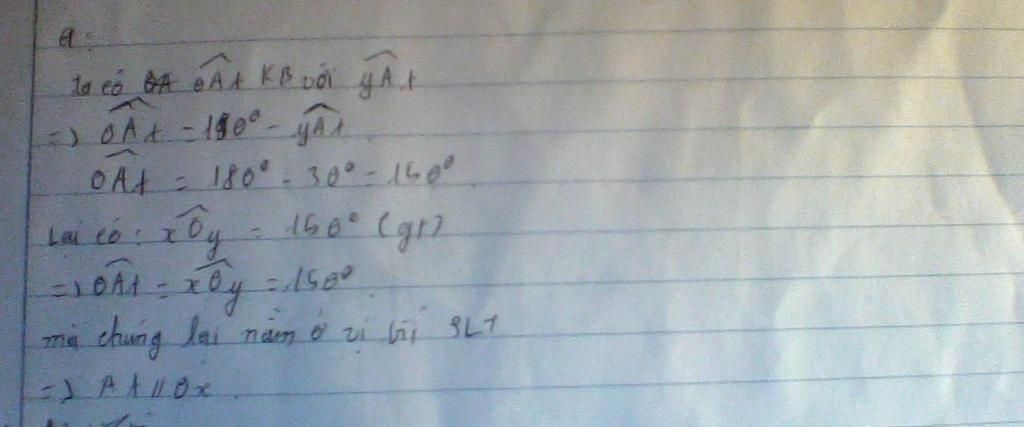 a:
ta có OÂt KB với yÂt
=> OÂt = 180° - yÂt
OÂt = 180° - 30° = 150°
Lại có: xÔy = 150° (gt)
=> OÂt = xÔy = 150°
mà chúng lại nằm ở vị trí SLT
=> At // Ox.